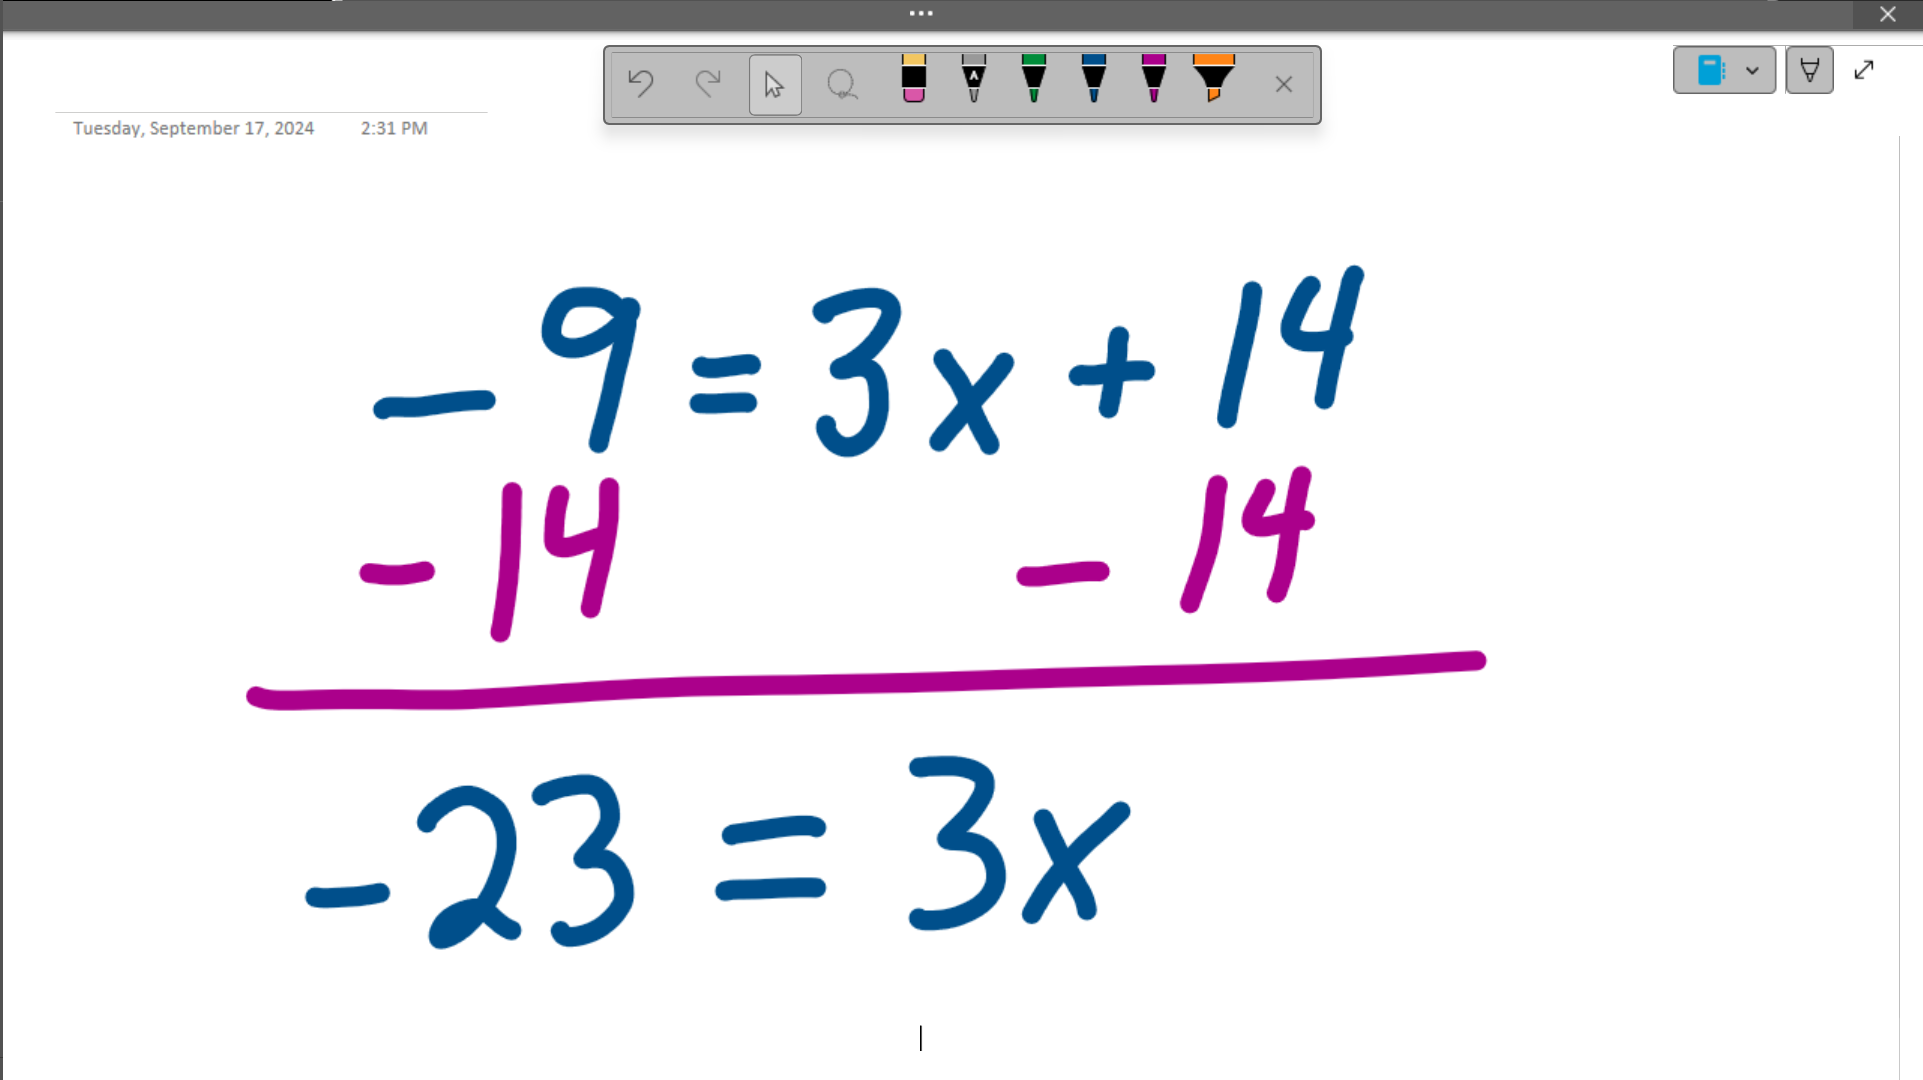 Tuesday, September 17, 2024 2:31 PM
-9 = 3x + 14
-14 - 14
-23 = 3x